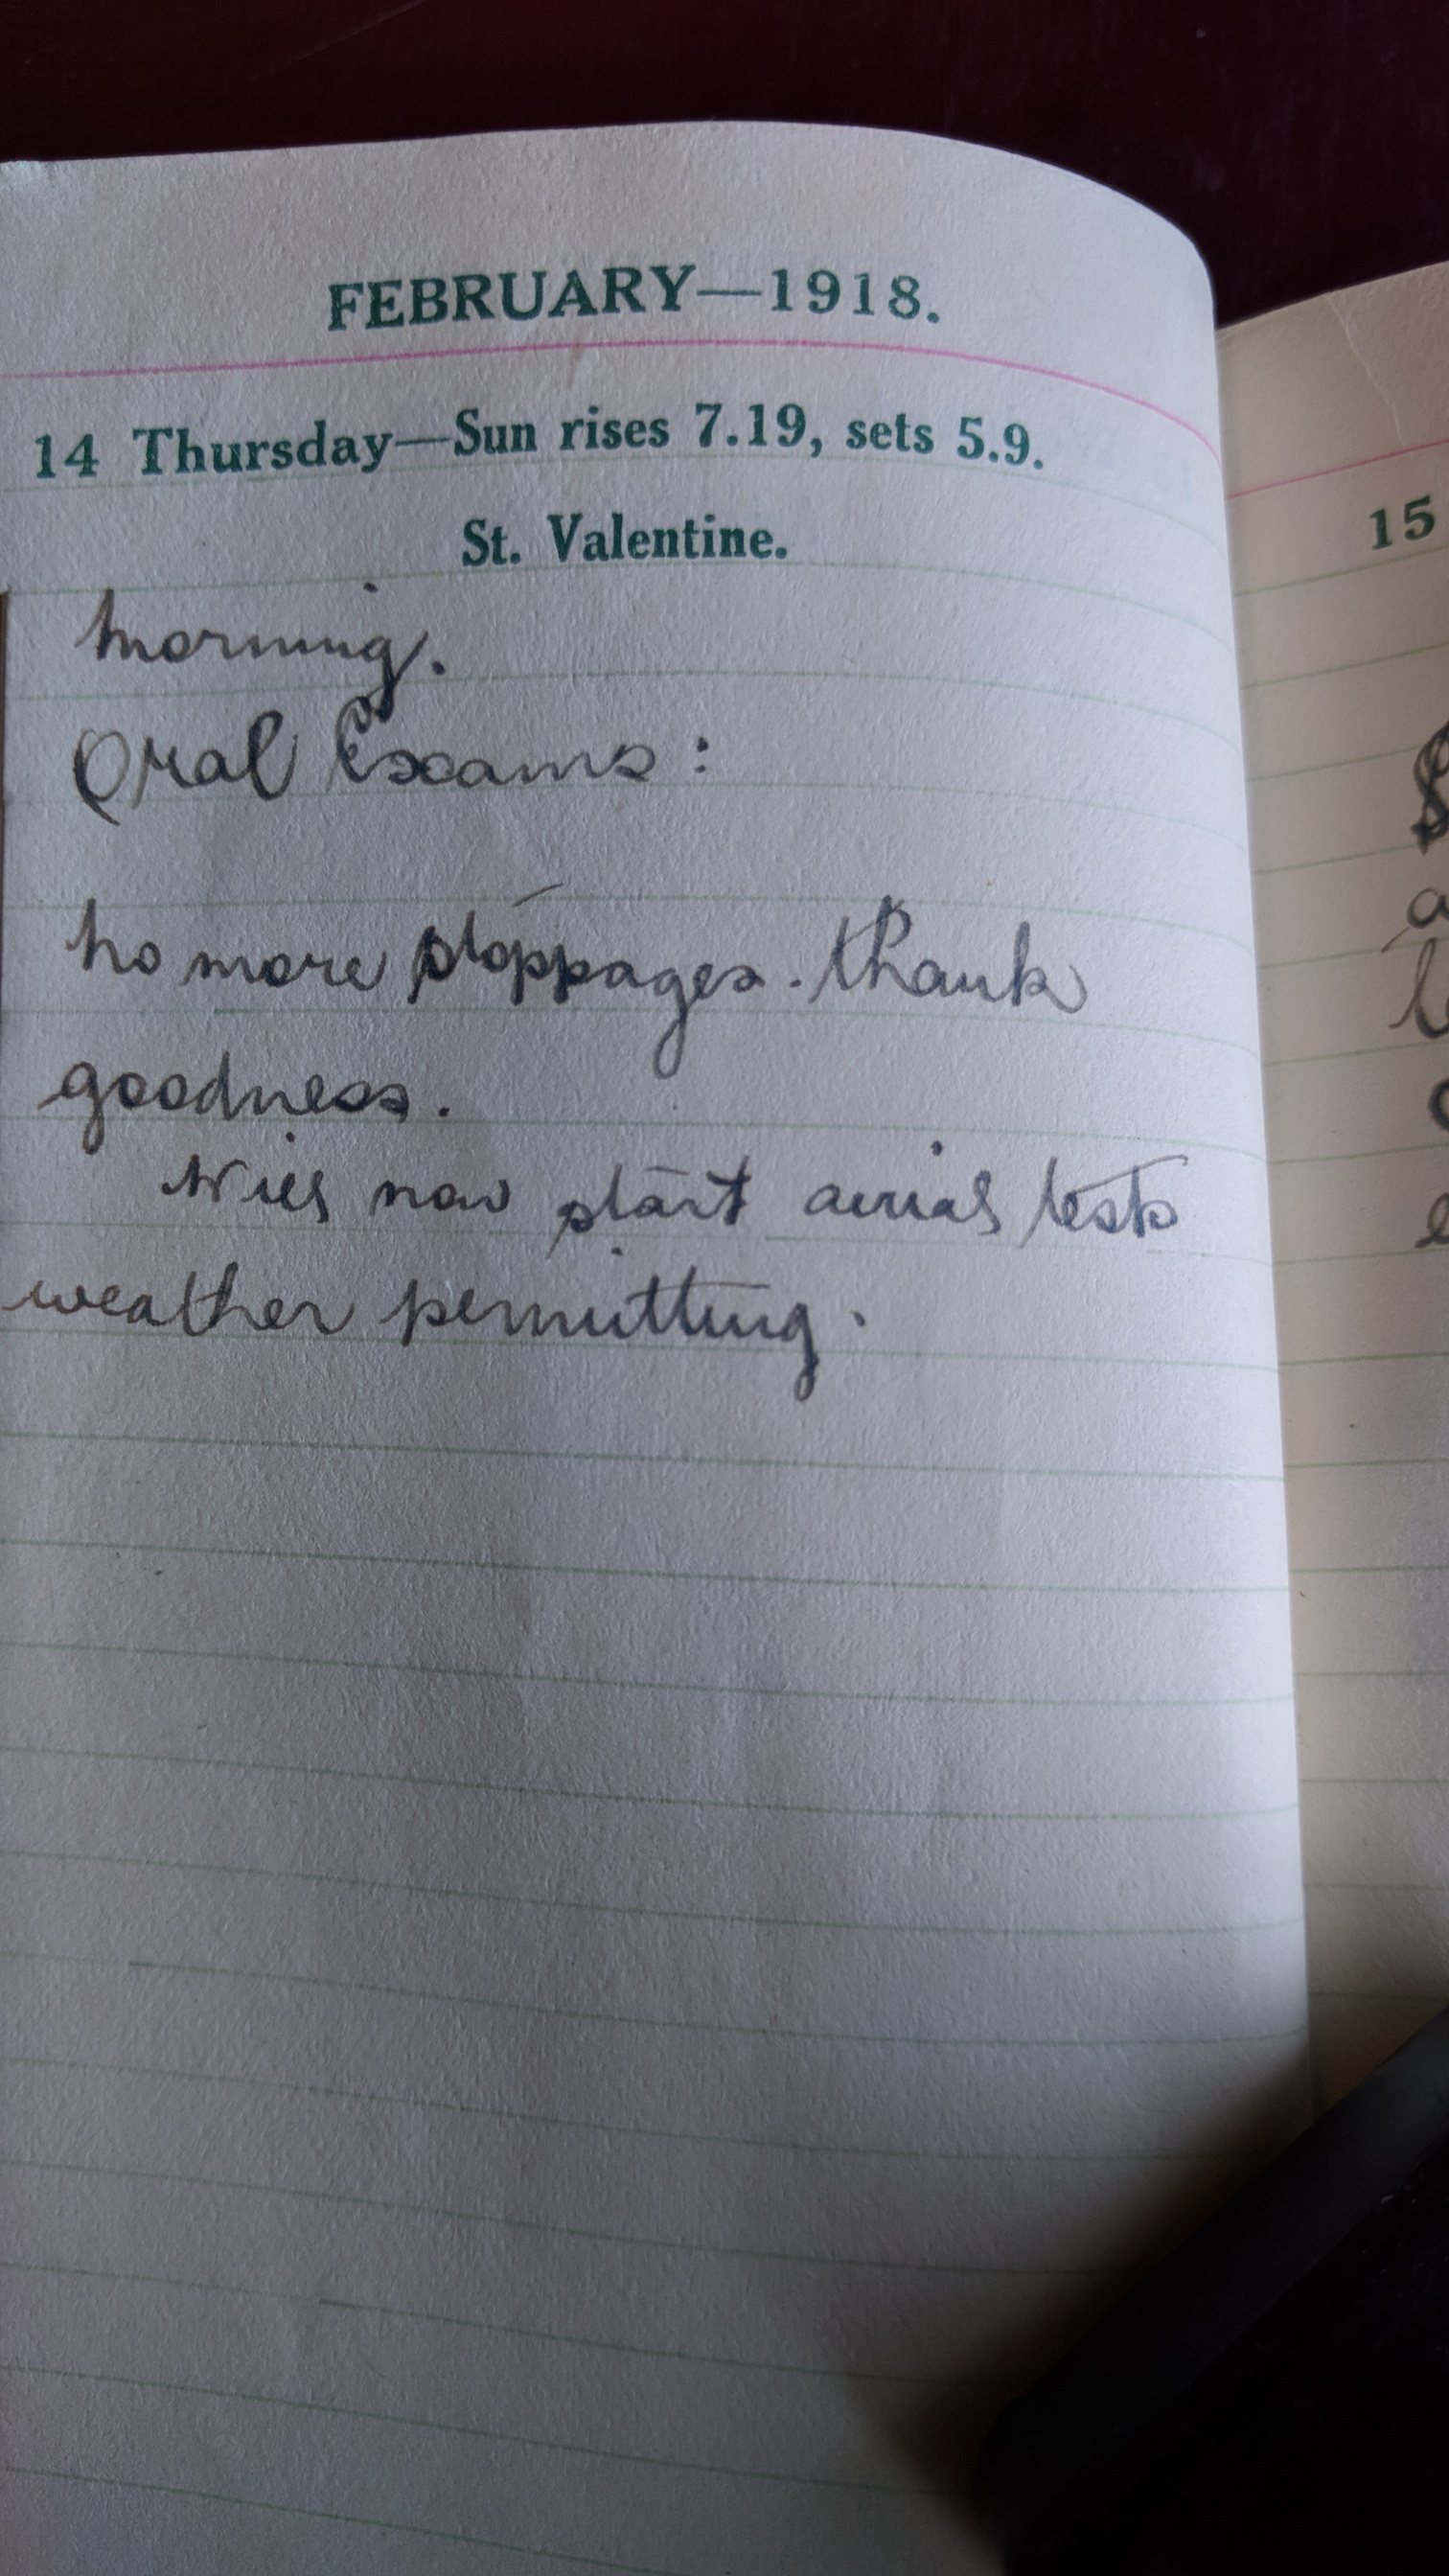 FEBRUARY—1918.
14 Thursday—Sun rises 7.19, sets 5.9.
St. Valentine.
Morning.
Oral Exams:
No more stoppages. thank
goodness.
Will now start aerial tests
weather permitting.
15